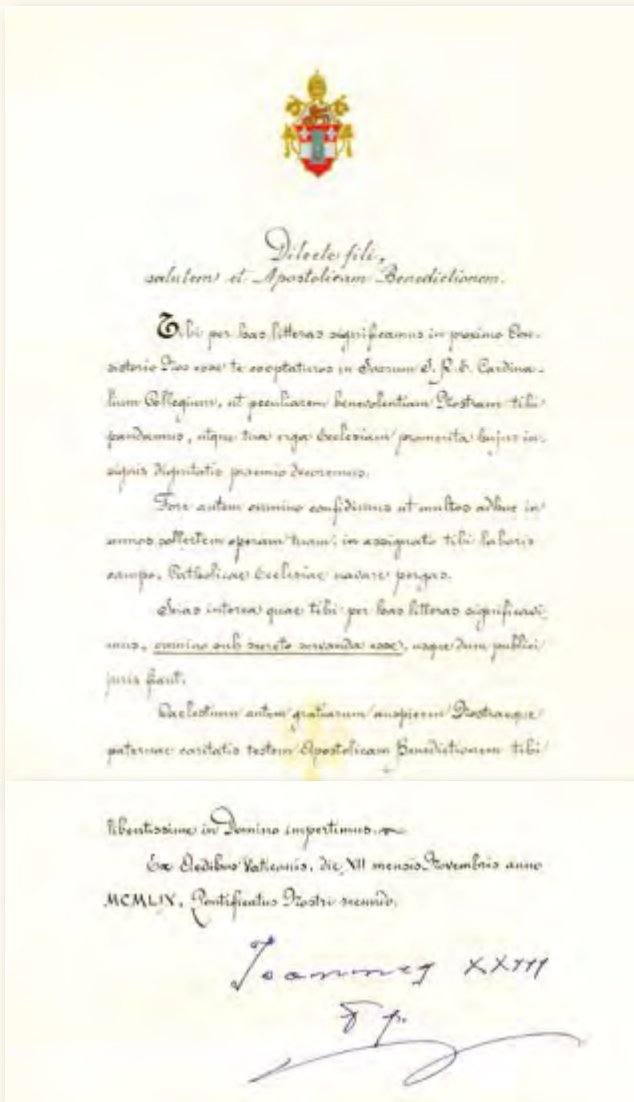 Dilecte fili,
salutem et Apostolicam Benedictionem.
Tibi per has litteras significamus in proximo Con-
sistorio Nos esse te cooptaturos in Sacrum S. R. E. Cardina-
lium Collegium, ut peculiarem benevolentiam Nostram tibi
pandamus, utque tua erga Ecclesiam promerita hujus in-
signis dignitatis praemio decoremus.
Fore autem omnino confidimus ut multos adhuc in
annos sollertem operam tuam, in assignato tibi laboris
campo, Catholicae Ecclesiae navare pergas.
Scias interea quae tibi per has litteras significavi-
mus, omnino sub secreto servanda esse, usque dum publici
juris fiant.
Caelestium autem gratiarum auspicem Nostraeque
paternae caritatis testem Apostolicam Benedictionem tibi
libentissime in Domino impertimus.
Ex Aedibus Vaticanis, die XII mensis Novembris anno
MCMLIX, Pontificatus Nostri secundo.
Ioannes XXIII
pp.